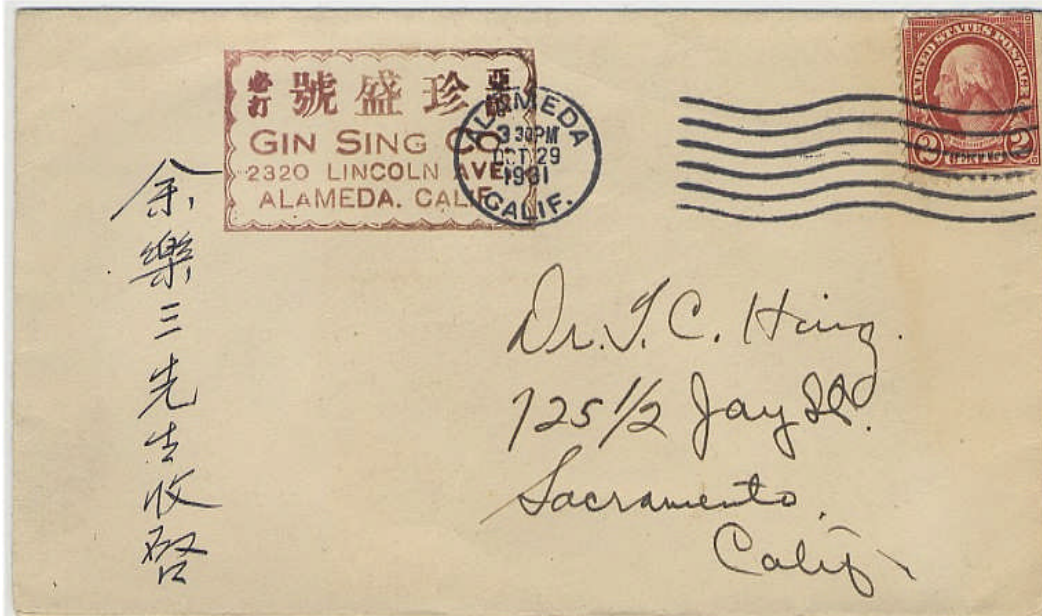 珍盛號
必打
GIN SING CO
2320 LINCOLN AVE.
ALAMEDA. CALIF.
ALAMEDA
3 30PM
OCT 29
1931
CALIF.
UNITED STATES POSTAGE
2 2
余樂三先生收啓
Dr. T. C. Hing.
725 1/2 Jay St.
Sacramento,
Calif.